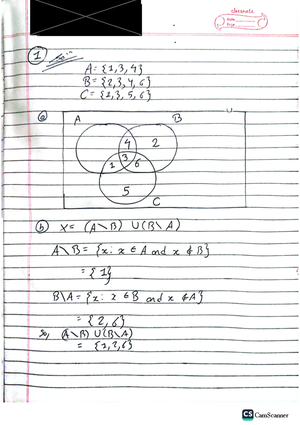 classmate
Date
Page
1
Soln:
A = {1,3,4}
B = {2,3,4,6}
C = {1,3,5,6}
a
U
A
B
4
2
3
1
6
5
C
(b) X = (A\B) U (B\A)
A\B = {x: x ∈ A and x ∉ B}
= {1}
B\A = {x: x ∈ B and x ∉ A}
= {2,6}
So, (A\B) U (B\A)
= {1,2,6}
CS CamScanner